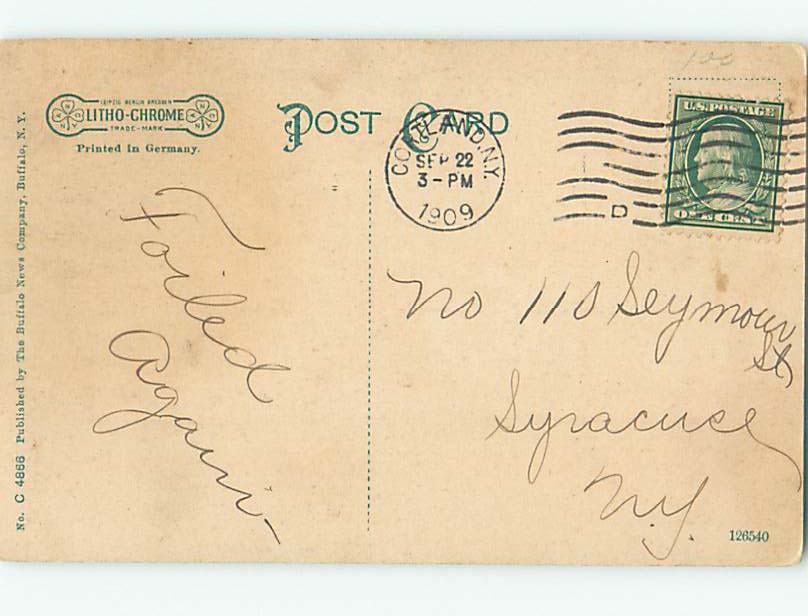 100
LEIPZIG BERLIN DRESDEN
LITHO-CHROME
TRADE-MARK
Printed in Germany.
POST CARD
CORTLAND, N.Y.
SEP 22
3-PM
1909
D
U.S. POSTAGE
ONE CENT
No. C 4866 Published by The Buffalo News Company, Buffalo, N. Y.
Foiled
Again-
No 110 Seymour
St
Syracuse
N.Y.
126540